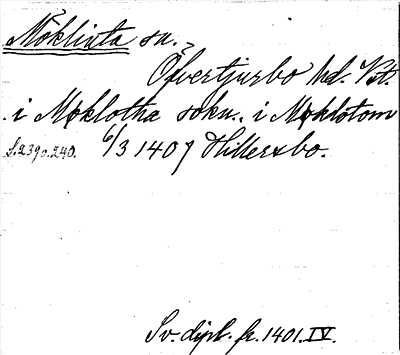 Möklinta sn.
Öfvertjurbo hd. Vstm.
i Møklotha sokn. i Møklotom
s. 239 o. 240. 6/3 1407 Hillersbo.
Sv. dipl. fr. 1401. IV.